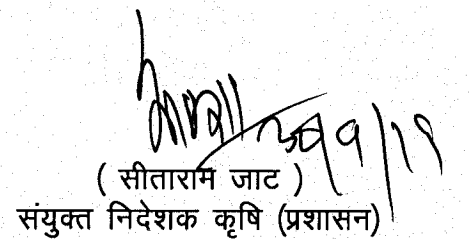 ( सीताराम जाट )
संयुक्त निदेशक कृषि (प्रशासन)